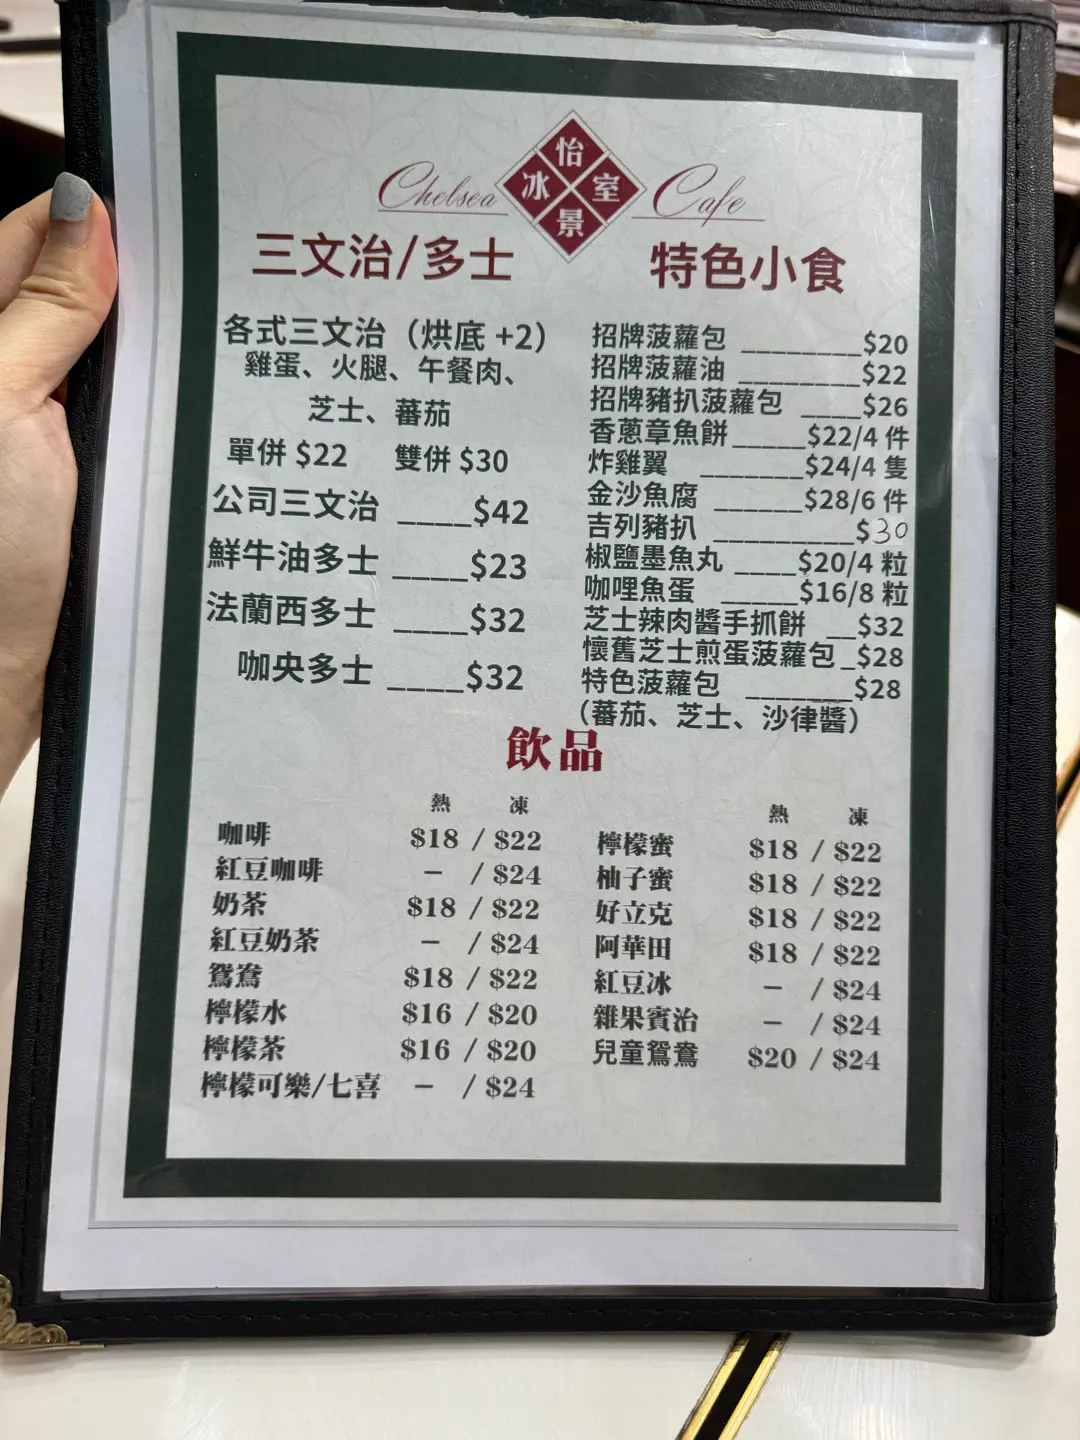 Chelsea 怡景冰室 Cafe
三文治/多士
各式三文治（烘底 +2）
雞蛋、火腿、午餐肉、
芝士、蕃茄
單併 $22 雙併 $30
公司三文治 ____$42
鮮牛油多士 ____$23
法蘭西多士 ____$32
咖央多士 ____$32
特色小食
招牌菠蘿包 ________$20
招牌菠蘿油 ________$22
招牌豬扒菠蘿包 ____$26
香蔥章魚餅_____$22/4 件
炸雞翼 _______$24/4 隻
金沙魚腐 ______$28/6 件
吉列豬扒 __________$30
椒鹽墨魚丸 ____$20/4 粒
咖哩魚蛋 _____$16/8 粒
芝士辣肉醬手抓餅 __$32
懷舊芝士煎蛋菠蘿包 _$28
特色菠蘿包 _______$28
（蕃茄、芝士、沙律醬）
飲品
熱 凍
咖啡 $18 / $22
紅豆咖啡 – / $24
奶茶 $18 / $22
紅豆奶茶 – / $24
鴛鴦 $18 / $22
檸檬水 $16 / $20
檸檬茶 $16 / $20
檸檬可樂/七喜 – / $24
熱 凍
檸檬蜜 $18 / $22
柚子蜜 $18 / $22
好立克 $18 / $22
阿華田 $18 / $22
紅豆冰 – / $24
雜果賓治 – / $24
兒童鴛鴦 $20 / $24